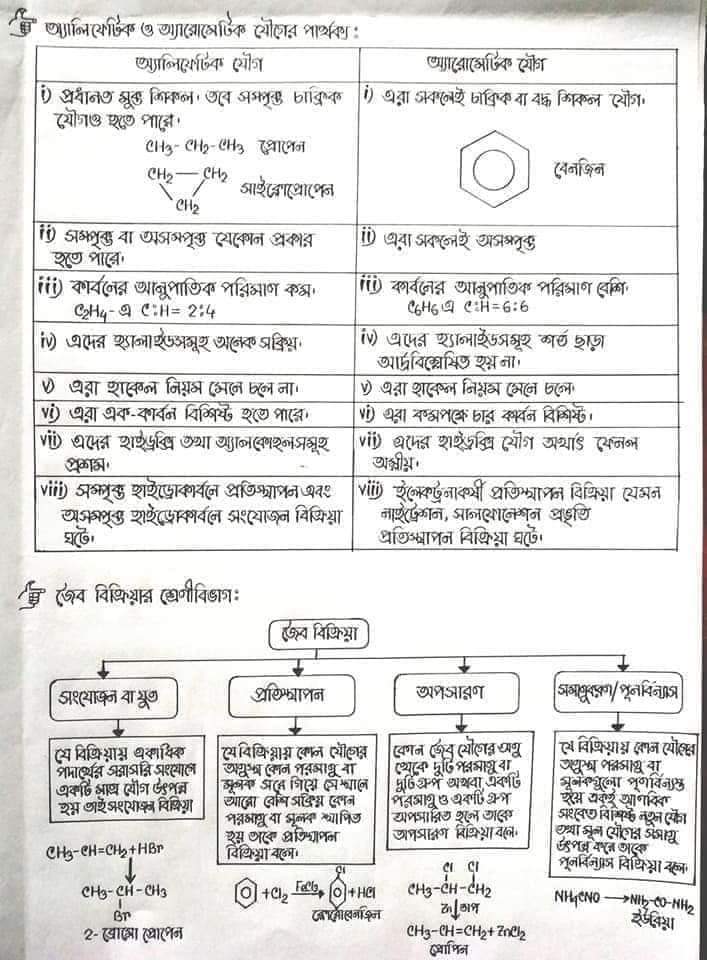 অ্যালিফেটিক ও অ্যারোমেটিক যৌগের পার্থক্য:
অ্যালিফেটিক যৌগ
অ্যারোমেটিক যৌগ
i) প্রধানত মুক্ত শিকল। তবে সম্পৃক্ত চাক্রিক
যৌগও হতে পারে।
CH3- CH2-CH3 প্রোপেন
CH2 — CH2
CH2
সাইক্লোপ্রোপেন
i) এরা সকলেই চাক্রিক বা বদ্ধ শিকল যৌগ।
বেনজিন
ii) সম্পৃক্ত বা অসম্পৃক্ত যেকোন প্রকার
হতে পারে।
ii) এরা সকলেই অসম্পৃক্ত
iii) কার্বনের আনুপাতিক পরিমাণ কম।
C2H4- এ C:H= 2:4
iii) কার্বনের আনুপাতিক পরিমাণ বেশি।
C6H6 এ C:H=6:6
iv) এদের হ্যালাইডসমূহ অনেক সক্রিয়।
iv) এদের হ্যালাইডসমূহ শর্ত ছাড়া
আর্দ্রবিশ্লেষিত হয় না।
v) এরা হাকেল নিয়ম মেনে চলে না।
v) এরা হাকেল নিয়ম মেনে চলে।
vi) এরা এক-কার্বন বিশিষ্ট হতে পারে।
vi) এরা কমপক্ষে চার কার্বন বিশিষ্ট।
vii) এদের হাইড্রক্সি তথা অ্যালকোহলসমূহ
প্রশম।
vii) এদের হাইড্রক্সি যৌগ অর্থাৎ ফেনল
অম্লীয়।
viii) সম্পৃক্ত হাইড্রোকার্বনে প্রতিস্থাপন এবং
অসম্পৃক্ত হাইড্রোকার্বনে সংযোজন বিক্রিয়া
ঘটে।
viii) ইলেকট্রনাকর্ষী প্রতিস্থাপন বিক্রিয়া যেমন
নাইট্রেশন, সালফোনেশন প্রভৃতি
প্রতিস্থাপন বিক্রিয়া ঘটে।
জৈব বিক্রিয়ার শ্রেণীবিভাগ:
জৈব বিক্রিয়া
সংযোজন বা যুত
প্রতিস্থাপন
অপসারণ
সমাণুকরণ/পুনর্বিন্যাস
যে বিক্রিয়ায় একাধিক
পদার্থের সরাসরি সংযোগে
একটি মাত্র যৌগ উৎপন্ন
হয় তাই সংযোজন বিক্রিয়া
CH3-CH=CH2+HBr
CH3- CH - CH3
Br
2- ব্রোমো প্রোপেন
যে বিক্রিয়ায় কোন যৌগের
অণুস্থ কোন পরমাণু বা
মূলক সরে গিয়ে সেখানে
আরো বেশি সক্রিয় কোন
পরমাণু বা মূলক স্থাপিত
হয় তাকে প্রতিস্থাপন
বিক্রিয়া বলে।
Cl
+Cl2 FeCl3 +HCl
ক্লোরোবেনজিন
কোন জৈব যৌগের অণু
থেকে দুটি পরমাণু বা
দুটি গ্রুপ অথবা একটি
পরমাণু ও একটি গ্রুপ
অপসারিত হলে তাকে
অপসারণ বিক্রিয়া বলে।
Cl Cl
CH3-CH-CH2
Zn তাপ
CH3-CH=CH2+ZnCl2
প্রোপিন
যে বিক্রিয়ায় কোন যৌগের
অণুস্থ পরমাণু বা
মূলকগুলো পুণর্বিন্যস্ত
হয়ে একই আণবিক
সংকেত বিশিষ্ট নতুন যৌগ
তথা মূল যৌগের সমাণু
উৎপন্ন করে তাকে
পূনর্বিন্যাস বিক্রিয়া বলে।
NH4CNO → NH2-CO-NH2
ইউরিয়া